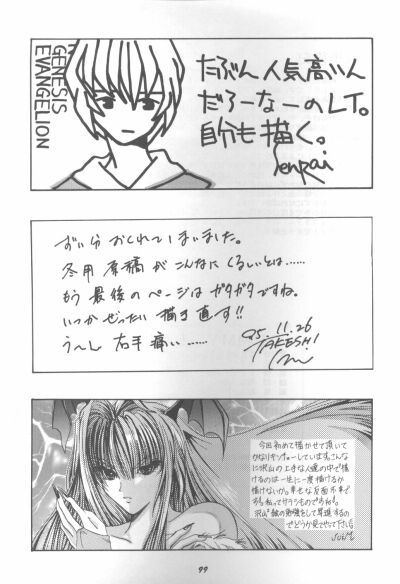 GENESIS
EVANGELION
たぶん人気高いん
だろーなーのLT。
自分も描く。
Senrai
ずい分おくれてしまいました。
冬用原稿がこんなにくるしいとは……
もう最後のページはガタガタですね。
いつかぜったい描き直す!!
う〜し右手痛い……
95.11.26
TAKESHI
今回初めて描かせて頂いて
かなりキンチョーしています。こんな
に沢山の上手な人達の中で描
けるのは一生に一度描けるか
描けないか。幸せな反面不幸で
でどうか見てやって下さい。
99